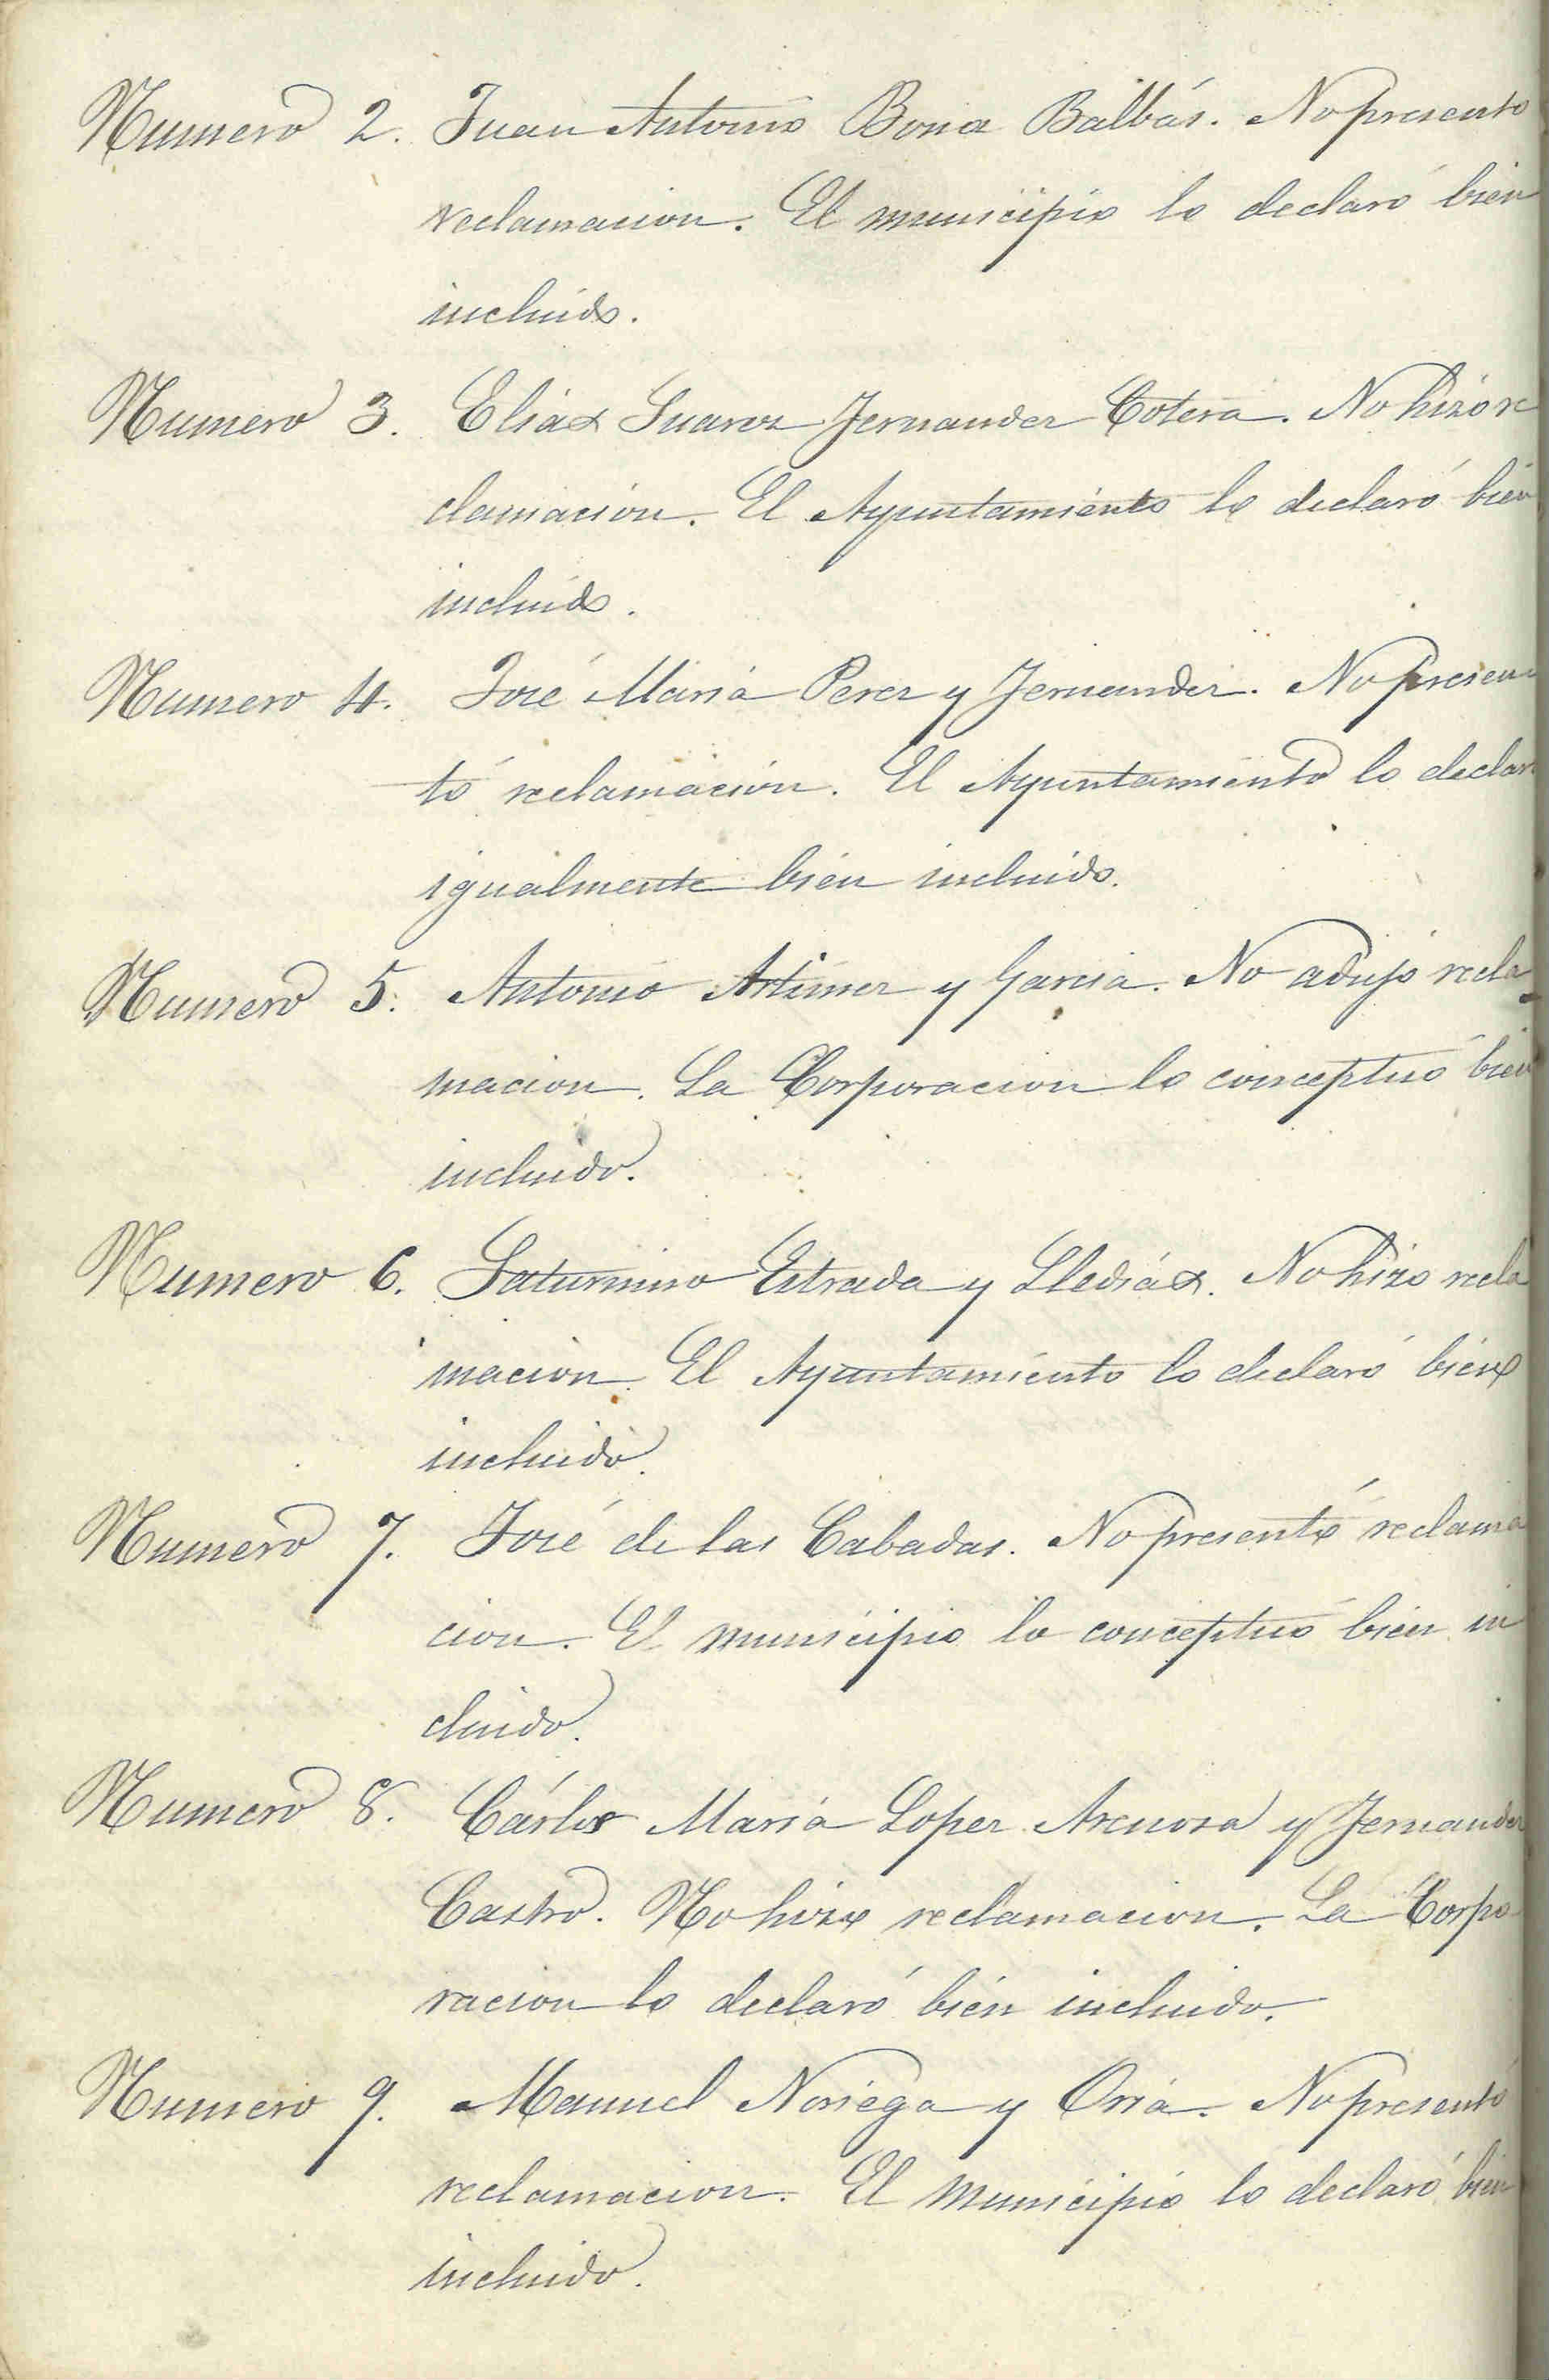 Numero 2. Juan Antonio Boria Balbás. No presento
reclamacion. El municipio lo declaró bien
incluido.
Numero 3. Elias Suarez Fernandez Cotera. No hizo re
clamación. El Ayuntamiento lo declaró bien
incluido.
Numero 4. José Maria Perez y Fernandez. No presen
tó reclamación. El Ayuntamiento lo declaró
igualmente bien incluido.
Numero 5. Antonio Artimez y Garcia. No adujo recla
macion. La Corporacion lo conceptuó bien
incluido.
Numero 6. Saturnino Estrada y Lledias. No hizo recla
macion. El Ayuntamiento lo declaró bien
incluido.
Numero 7. José de las Cabadas. No presentó reclama
cion. El municipio lo conceptuó bien in
cluido.
Numero 8. Cárlos Maria Lopez Arenosa y Fernandez
Castro. No hizo reclamacion. La Corpo
racion lo declaró bien incluido.
Numero 9. Manuel Noriega y Oria. No presentó
reclamacion. El municipio lo declaró bien
incluido.